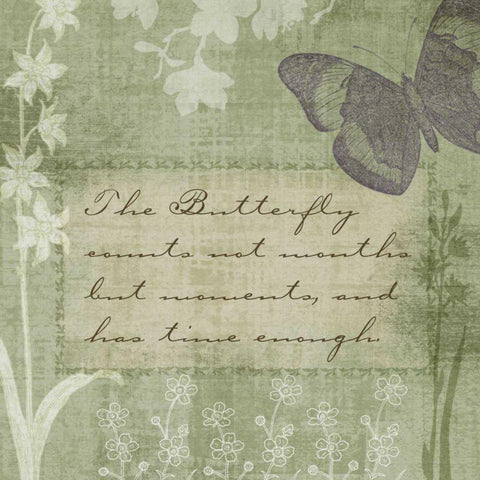 The Butterfly
counts not months
but moments, and
has time enough.